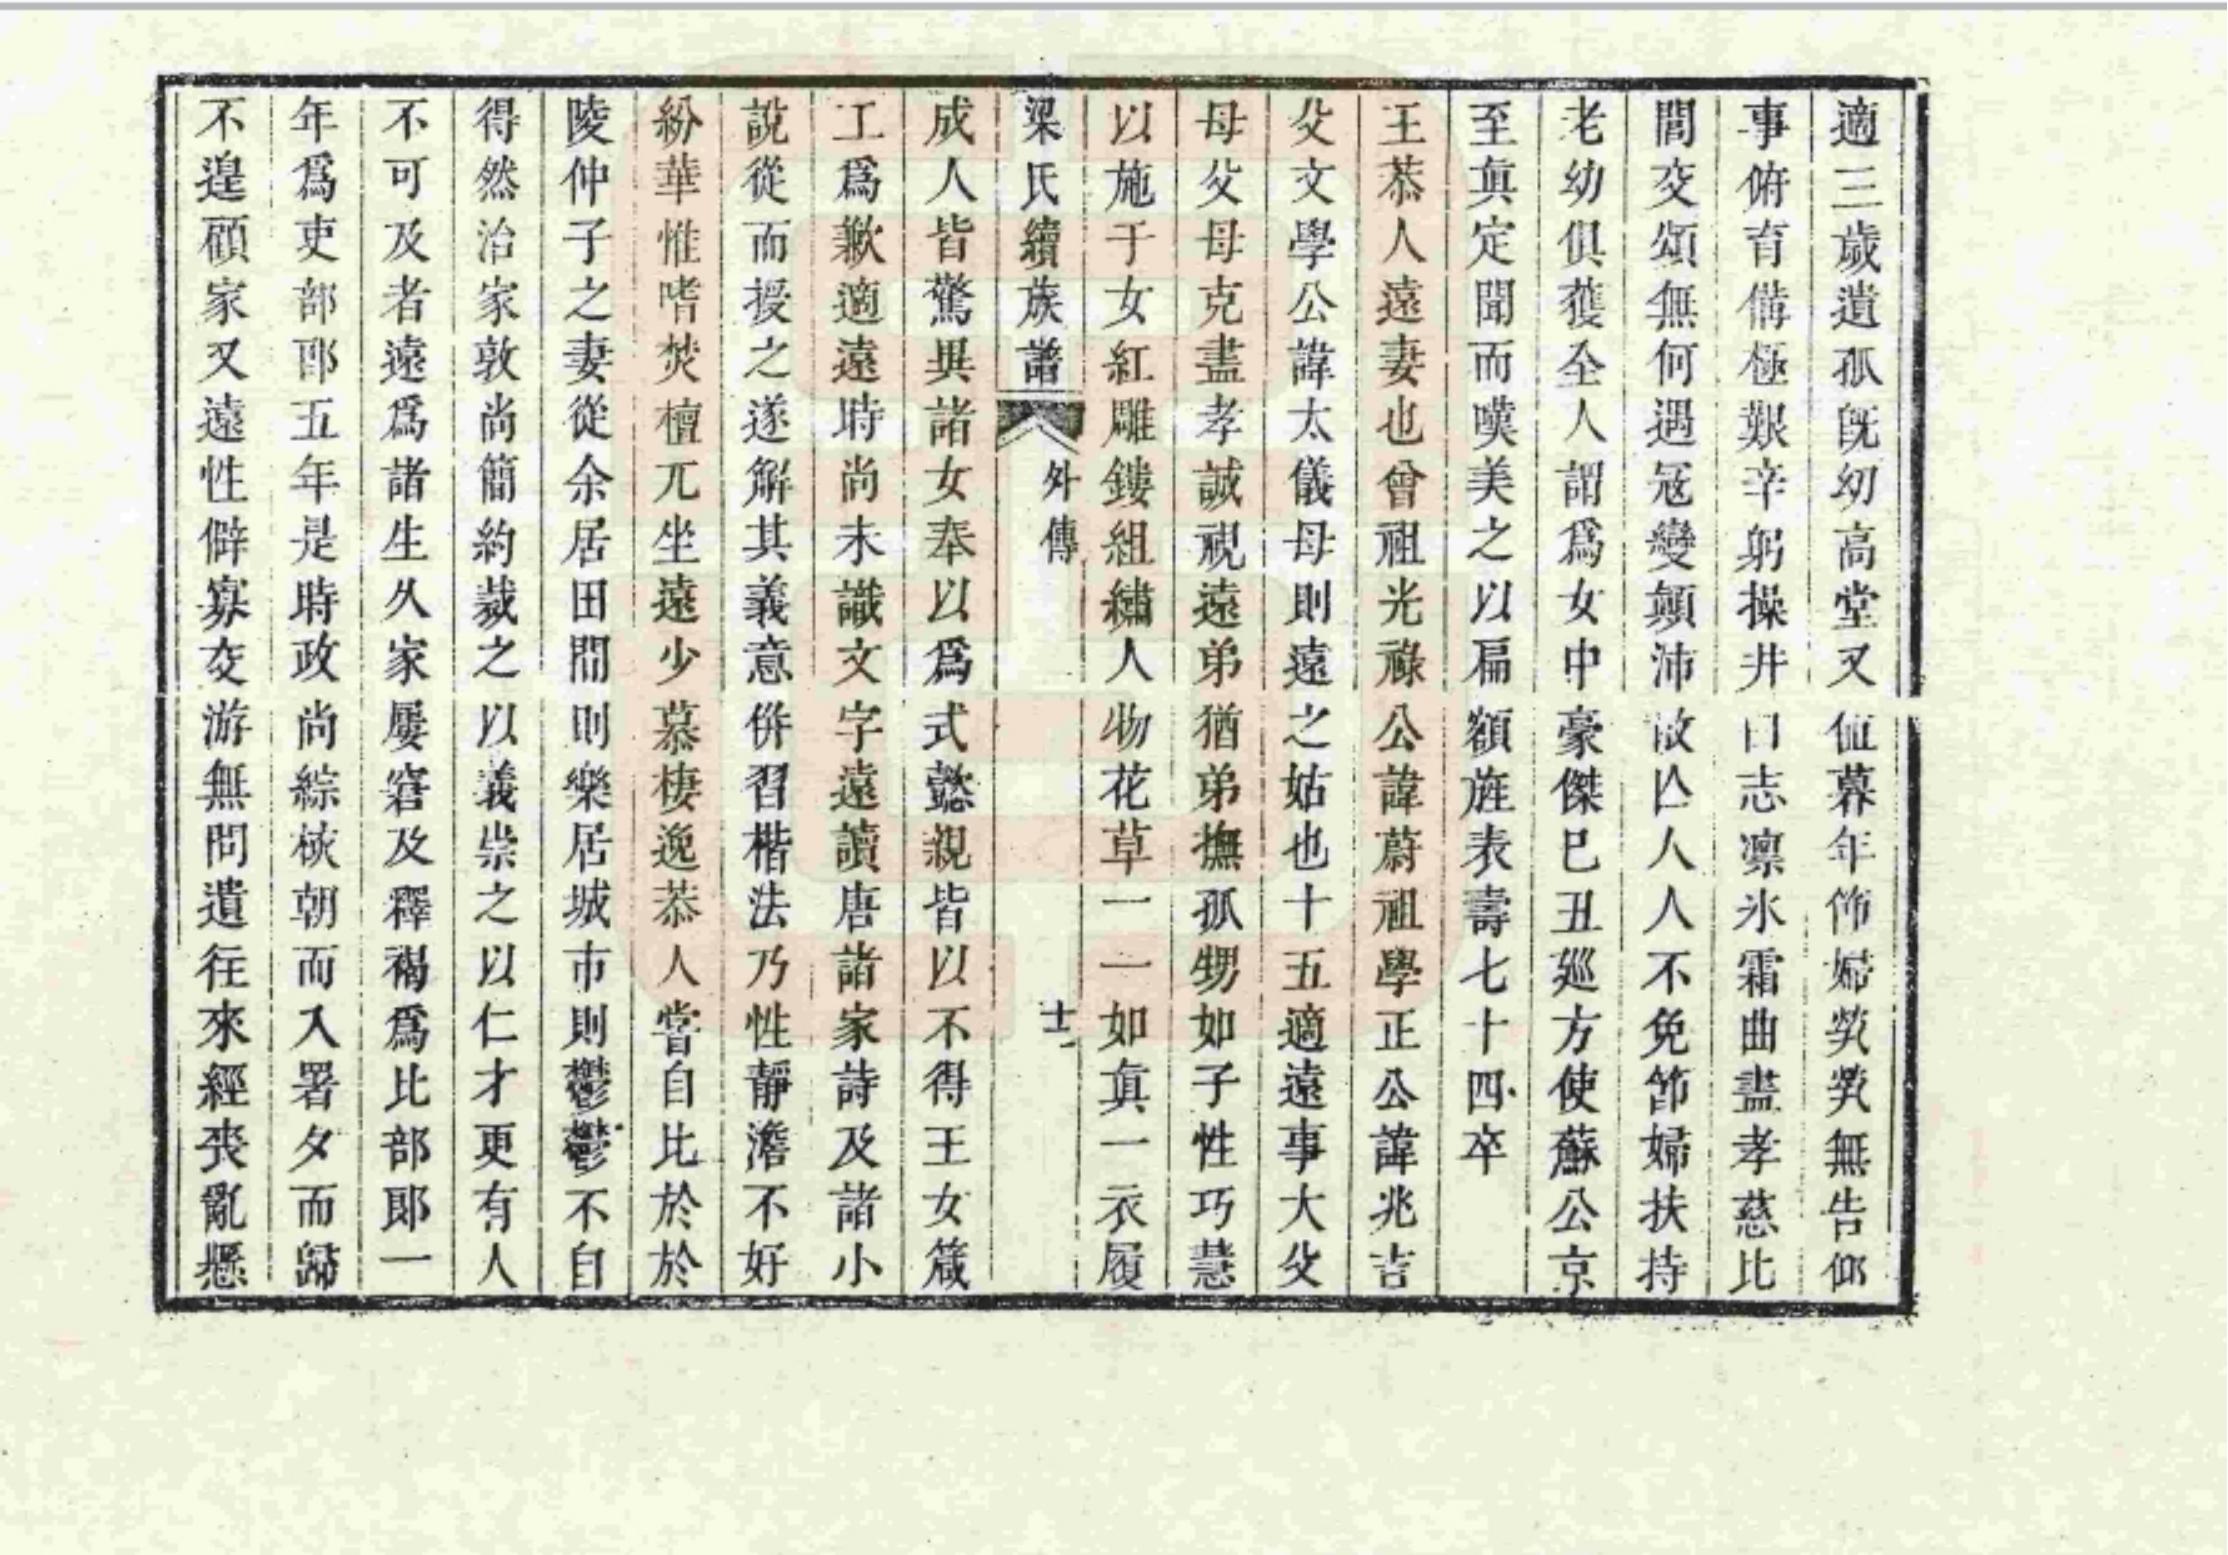 適三歲遺孤旣幼高堂又值暮年嫠婦煢煢無告仰
事俯育備極艱辛躬操井臼志凛氷霜曲盡孝慈比
閭交頌無何遇冦變顛沛散亾人人不免節婦扶持
老幼俱獲全人謂爲女中豪傑巳丑廵方使蘇公京
至眞定聞而嘆美之以扁額旌表壽七十四卒
王恭人遠妻也曾祖光祿公諱蔚祖學正公諱兆吉
父文學公諱太儀母則遠之姑也十五適遠事大父
母父母克盡孝誠視遠弟猶弟撫孤甥如子性巧慧
以施于女紅雕鏤組繡人物花草一一如眞一衣履
梁氏續族譜 外傳 十二
成人皆驚異諸女奉以爲式懿親皆以不得王女箴
工爲歉適遠時尚未識文字遠讀唐諸家詩及諸小
說從而授之遂解其義意併習楷法乃性靜澹不好
紛華惟嗜焚檀兀坐遠少慕棲逸恭人嘗自比於於
陵仲子之妻從余居田間則樂居城市則鬱鬱不自
得然治家敦尚簡約裁之以義崇之以仁才更有人
不可及者遠爲諸生久家屢窘及釋褐爲比部郎一
年爲吏部郎五年是時政尚綜核朝而入署夕而歸
不遑顧家又遠性僻寡交游無問遺往來經喪亂懸